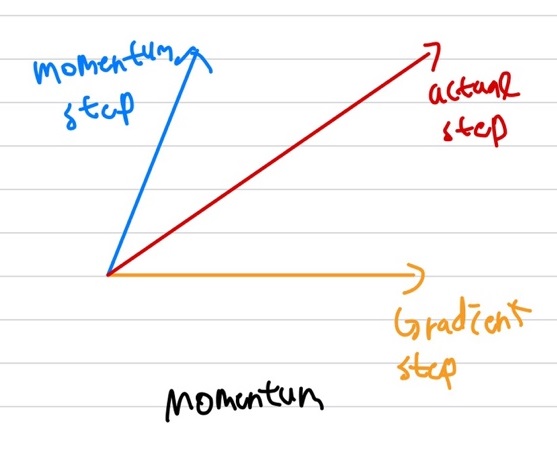 momentum
step
actual
step
Gradient
step
Momentum